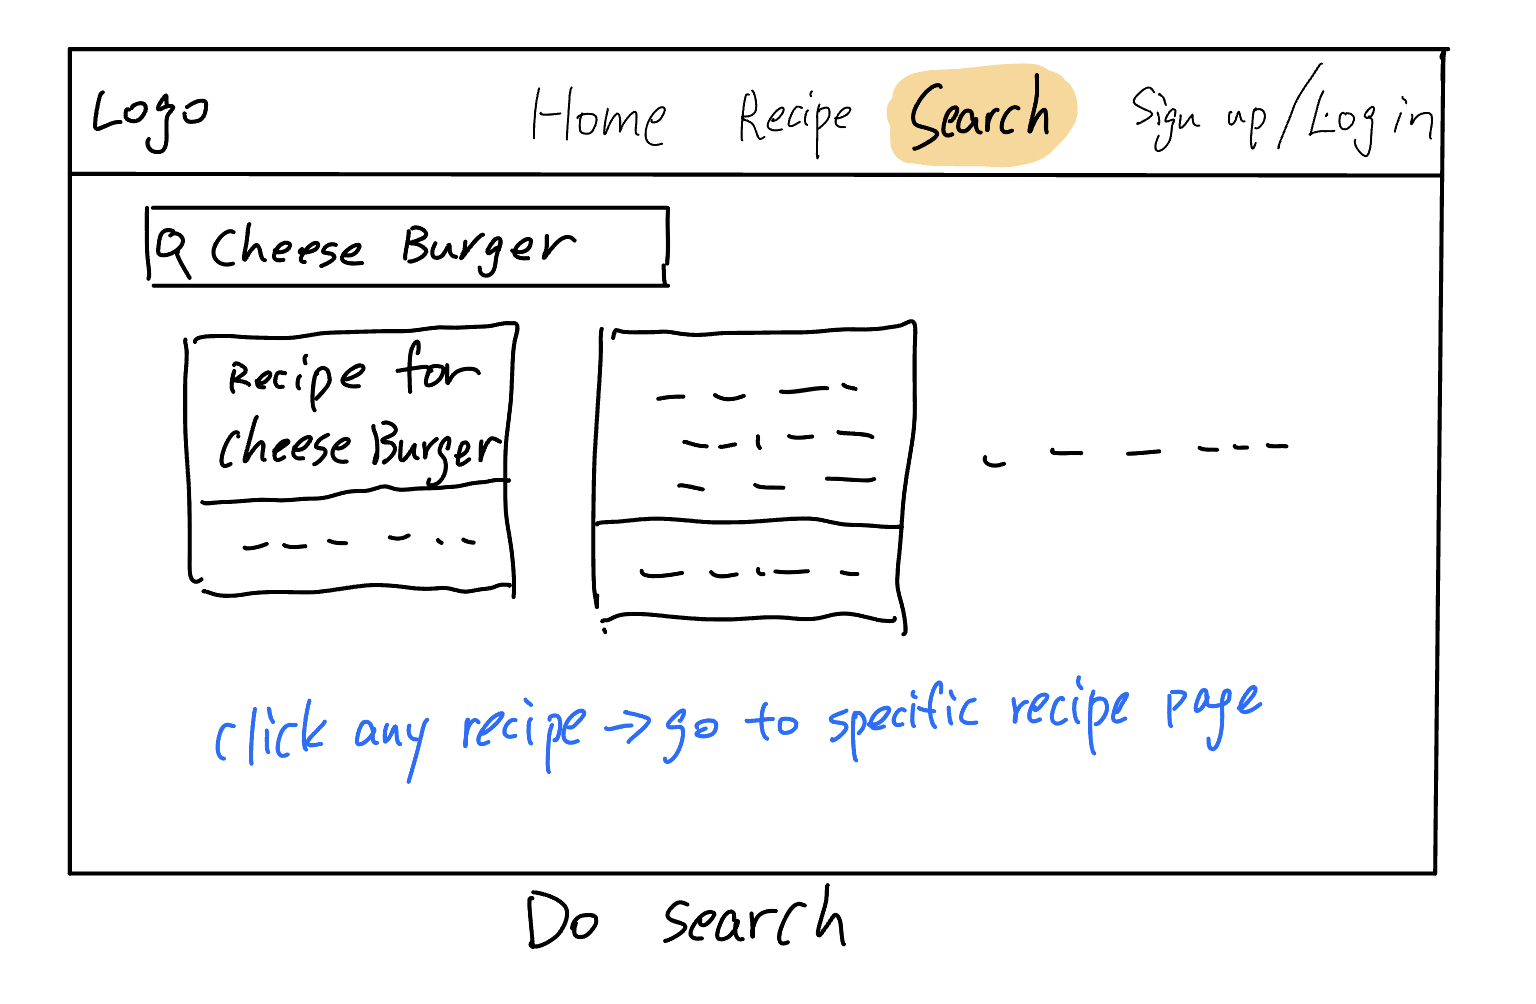 Logo Home Recipe Search Sign up/Log in
Cheese Burger
Recipe for
Cheese Burger
click any recipe → go to specific recipe page
Do search